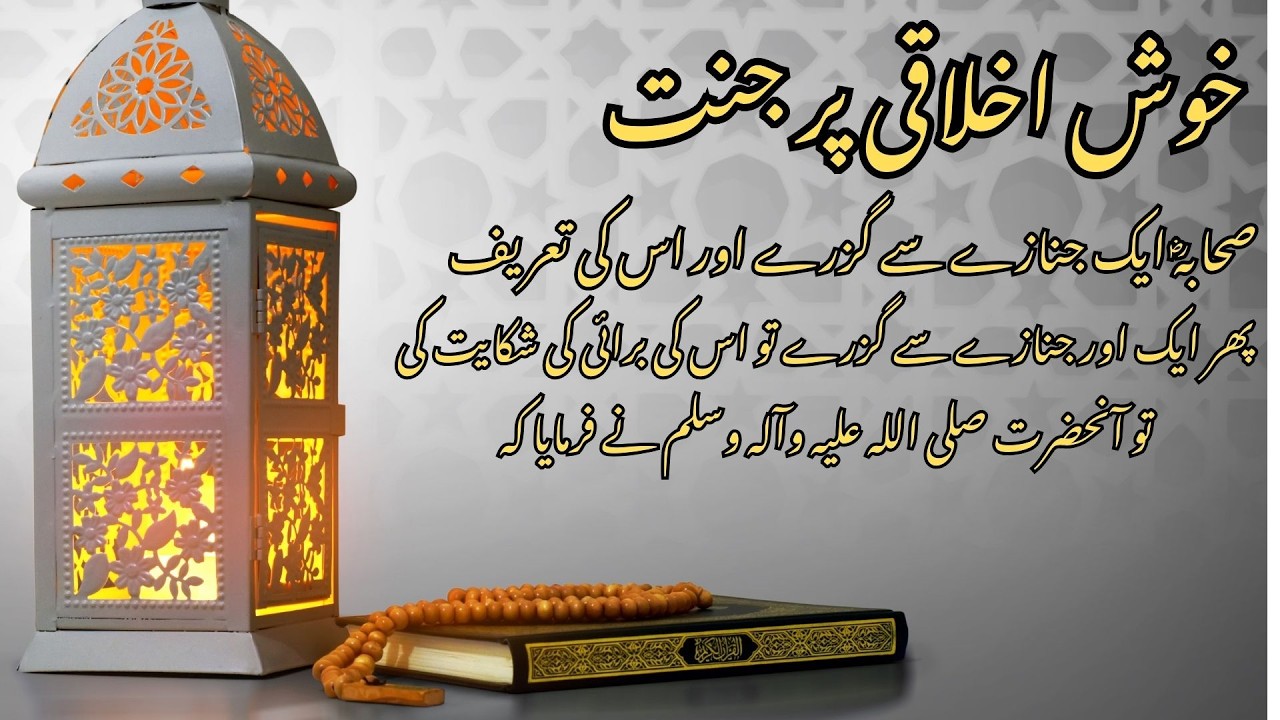 خوش اخلاقی پر جنت
صحابہؓ ایک جنازے سے گزرے اور اس کی تعریف
پھر ایک اور جنازے سے گزرے تو اس کی برائی کی شکایت کی
تو آنحضرت صلی اللہ علیہ وآلہ وسلم نے فرمایا کہ
القرآن الكريم